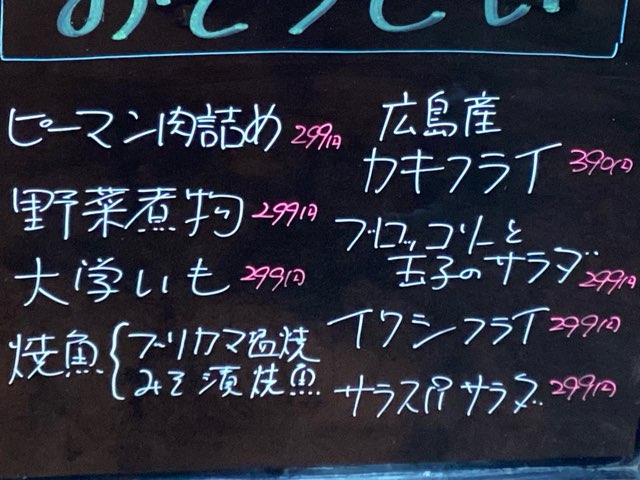 おそうざい
ピーマン肉詰め 299円
野菜煮物 299円
大学いも 299円
焼魚{ブリカマ塩焼
みそ漬焼魚
広島産
カキフライ 390円
ブロッコリーと
玉子のサラダ 299円
イワシフライ 299円
サラスパサラダ 299円